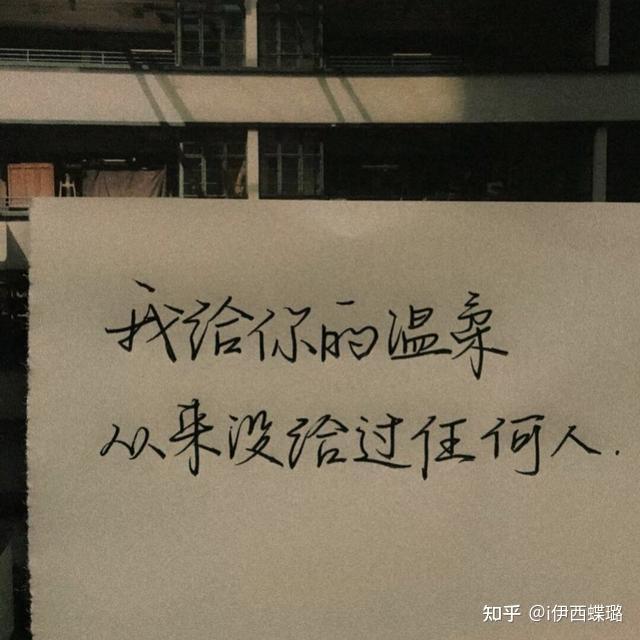 我给你的温柔
从来没给过任何人.
知乎 @i伊西蝶璐